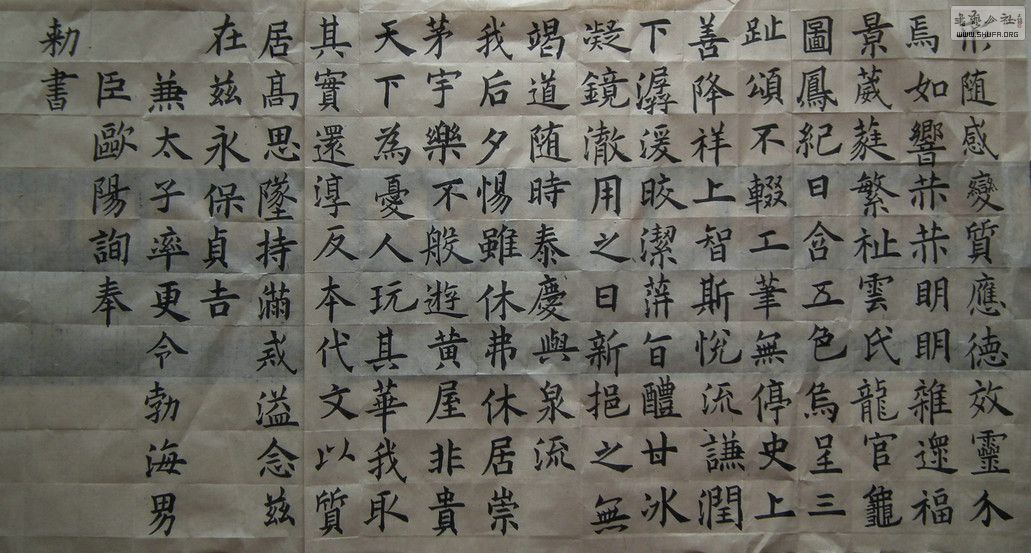 形随感變質應德效靈介
焉如響赫赫明明雜遝福
景葳蕤繁祉雲氏龍官龜
圖鳳紀日含五色烏呈三
趾頌不輟工筆無停史上
善降祥上智斯悅流謙潤
下潺湲晈潔蓱旨醴甘冰
凝鏡澈用之日新挹之無
竭道随時泰慶與泉流
我后夕惕雖休弗休居崇
茅宇樂不般遊黃屋非貴
天下為憂人玩其華我取
其實還淳反本代文以質
居高思墜持滿戒溢念茲
在茲永保貞吉
兼太子率更令勃海男
臣歐陽詢奉
勅書
書藝公社
WWW.SHUFA.ORG